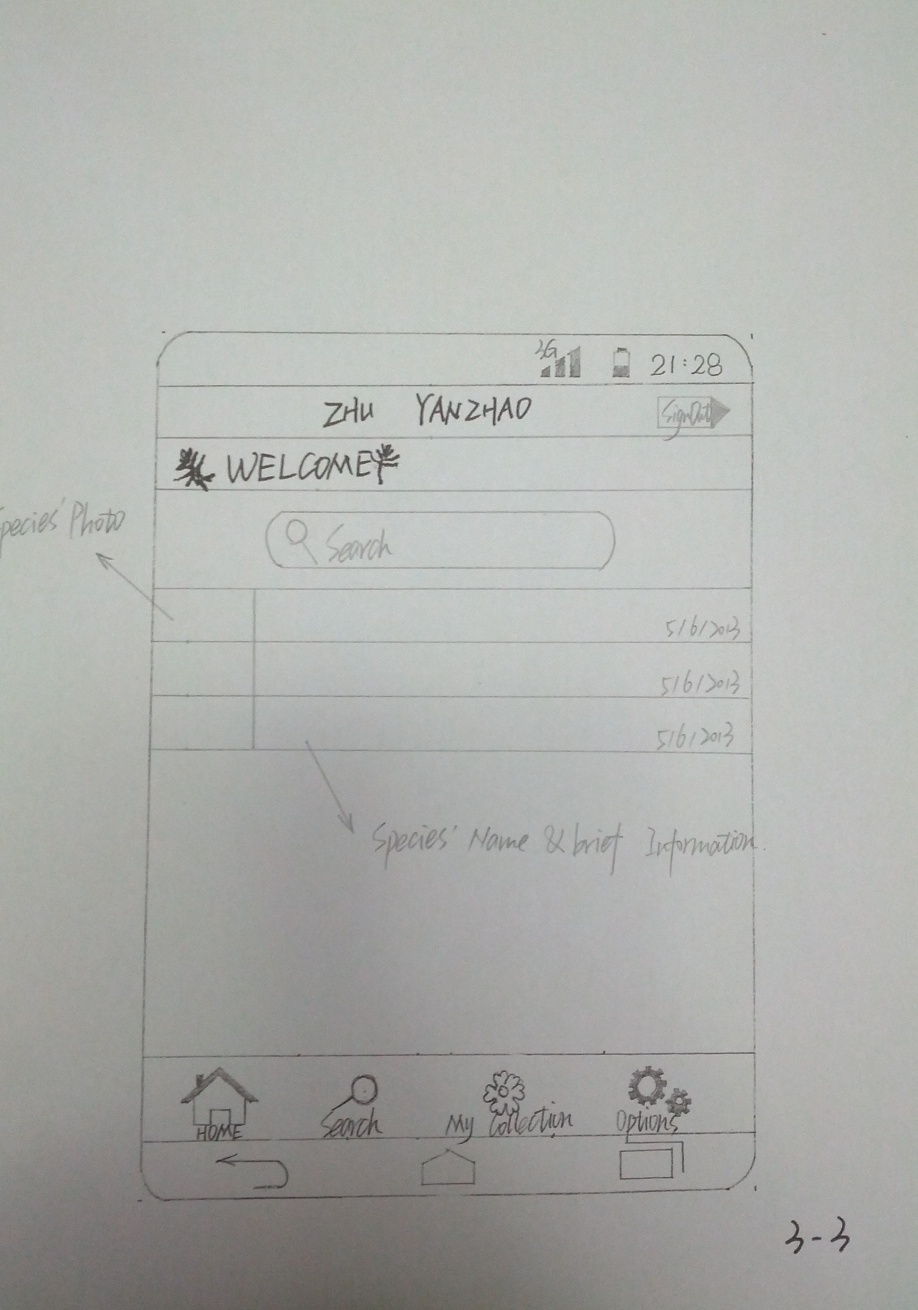 3G 21:28
ZHU YANZHAO SignOut
WELCOME
Species' Photo
Search
5/6/2013
5/6/2013
5/6/2013
Species' Name & brief Information.
HOME Search My Collection Options
3-3